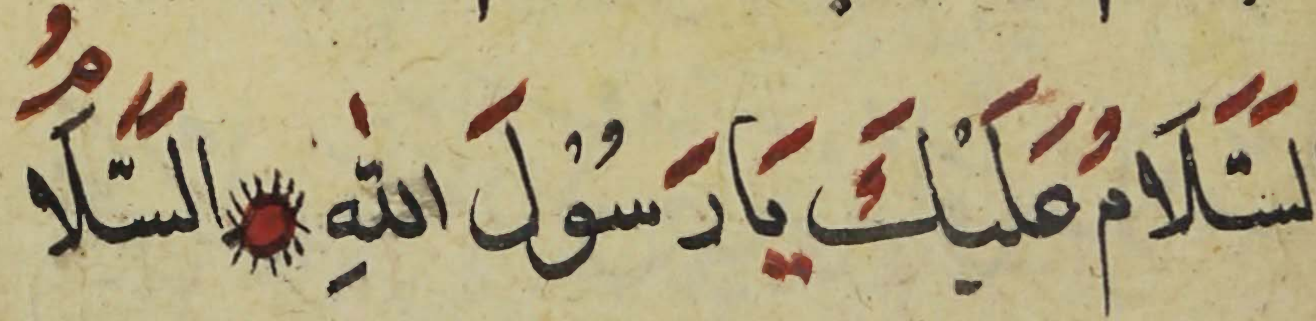 لسَّلَامُ عَلَيْكَ يَا رَسُوْلَ اللّٰهِ السَّلَامُ